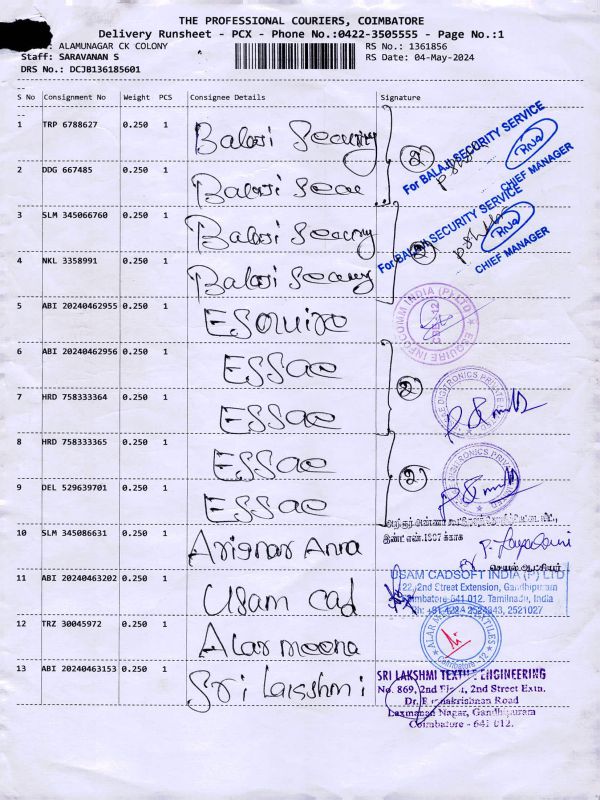 THE PROFESSIONAL COURIERS, COIMBATORE
Delivery Runsheet - PCX - Phone No.:0422-3505555 - Page No.:1
: ALAMUNAGAR CK COLONY
RS No.: 1361856
Staff: SARAVANAN S
RS Date: 04-May-2024
DRS No.: DCJB136185601
S No Consignment No Weight PCS Consignee Details Signature
1 TRP 6788627 0.250 1 Balaji Security
For BALAJI SECURITY SERVICE
CHIEF MANAGER
2 DDG 667485 0.250 1 Balaji Secu
3 SLM 345066760 0.250 1 Balaji Security
For BALAJI SECURITY SERVICE
CHIEF MANAGER
4 NKL 3358991 0.250 1 Balaji Security
5 ABI 20240462955 0.250 1 Esquire
ESQUIRE INFOCOMM INDIA (P) LTD
CBE-12
6 ABI 20240462956 0.250 1 ESSae
7 HRD 758333364 0.250 1 ESSae
DIGITRONICS PRIVATE
8 HRD 758333365 0.250 1 ESSae
9 DEL 529639701 0.250 1 ESSae
10 SLM 345086631 0.250 1 Arignar Anna
செயல் ஆட்சியர்
11 ABI 20240463202 0.250 1 Usam Cad
USAM CADSOFT INDIA (P) LTD
22, 2nd Street Extension, Gandhipuram
Coimbatore-641 012. Tamilnadu, India
2521027
12 TRZ 30045972 0.250 1 Alar meena
ALAR MEENA TEXTILES
Coimbatore - 12
13 ABI 20240463153 0.250 1 Sri Lakshmi
SRI LAKSHMI TEXTILE ENGINEERING
No. 869, 2nd Floor, 2nd Street Extn.
Dr. Radhakrishnan Road
Laxmanan Nagar, Gandhipuram
Coimbatore - 641 012.